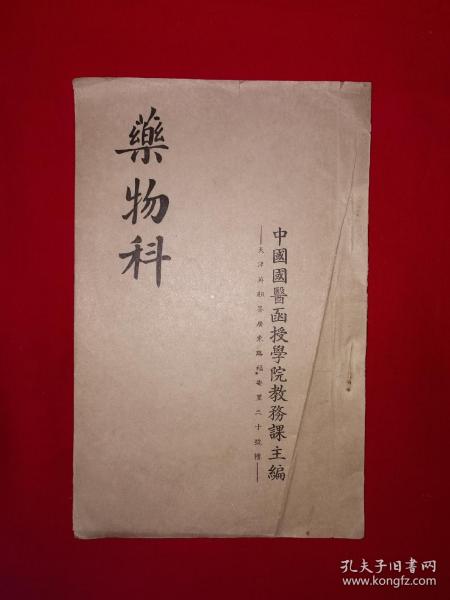 藥物科
中國國醫函授學院教務課主編
天津英租界廣東路福安里二十號樓
孔夫子旧书网
www.kongfz.com